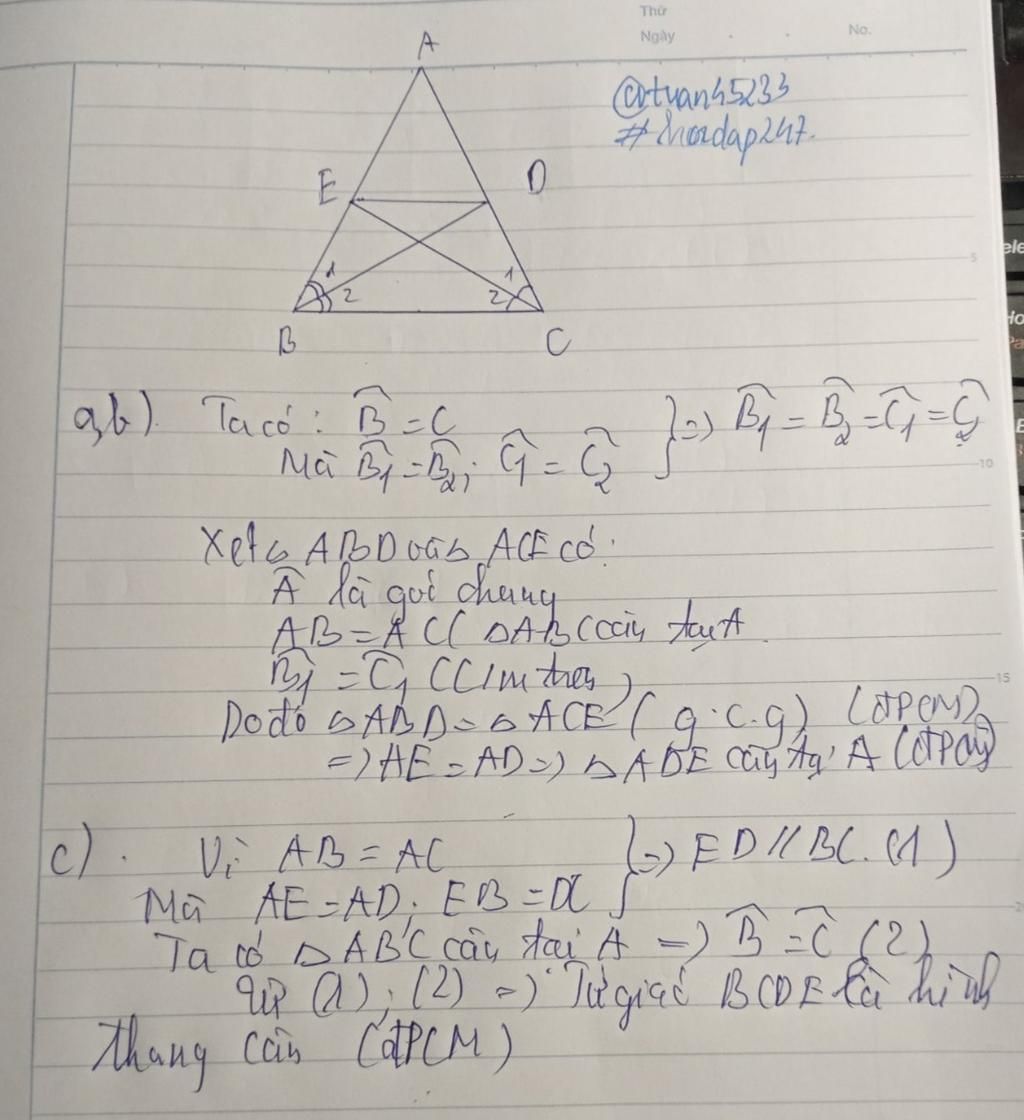 Thứ
Ngày
No.
A
@tuan45233
#hoidap247.
E
D
1
2
1
2
B
C
a,b). Ta có: B̂ = C
Mà B̂1 = B̂2; Ĉ1 = Ĉ2 } => B̂1 = B̂2 = Ĉ1 = Ĉ2
Xét △ ABD và △ ACE có:
Â là góc chung
AB = AC ( △ABC cân tại A
B̂1 = Ĉ1 (C/m trên)
Do đó △ABD = △ACE (g.c.g) (ĐPCM)
=> AE = AD => △ADE cân tại A (ĐPCM)
c). Vì AB = AC
Mà AE = AD; EB = DC } => ED // BC. (1)
Ta có △ABC cân tại A => B̂ = Ĉ (2)
Từ (1); (2) => Tứ giác BCDE là hình
thang cân (ĐPCM)
5
10
15